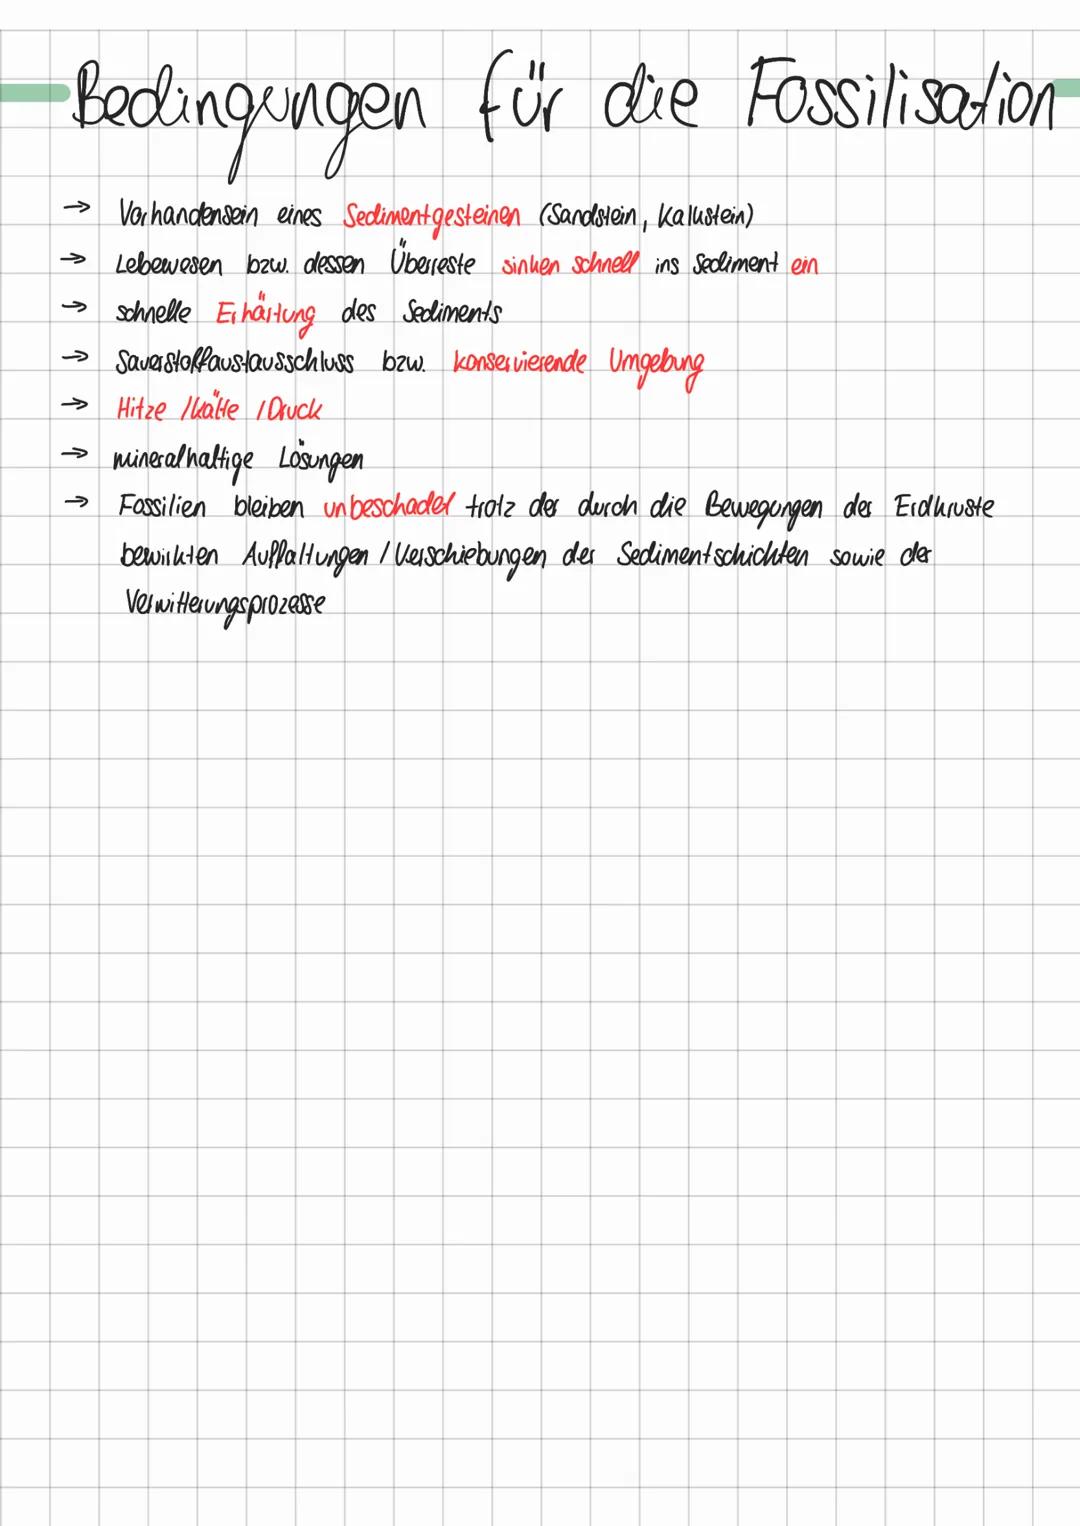 Bedingungen für die Fossilisation
→ Vorhandensein eines Sedimentgesteinen (Sandstein, Kalkstein)
→ Lebewesen bzw. dessen Überreste sinken schnell ins Sediment ein
→ schnelle Erhärtung des Sediments
→ Sauerstoffaustausschluss bzw. konservierende Umgebung
→ Hitze /Kälte /Druck
→ mineralhaltige Lösungen
→ Fossilien bleiben unbeschadet trotz der durch die Bewegungen der Erdkruste
bewirkten Auffaltungen / Verschiebungen der Sedimentschichten sowie der
Verwitterungsprozesse